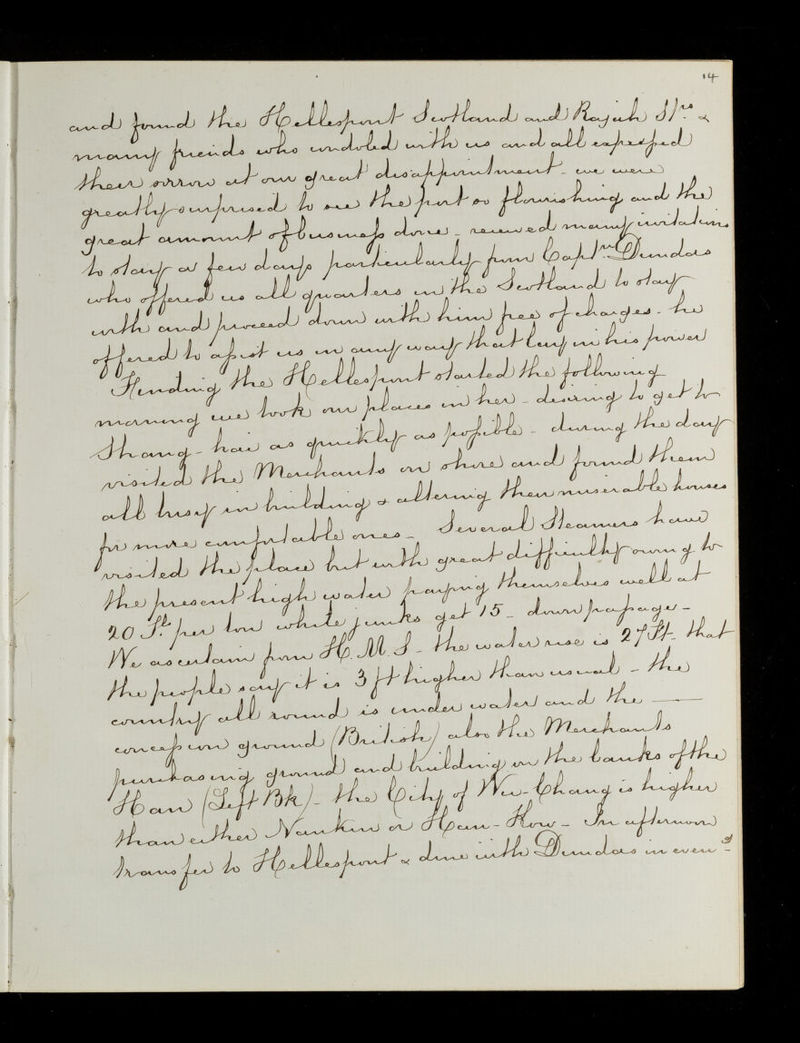 14
and found the Hellespont Scotland and Rajah Strs &
many friends who condoled with us and all expressed
their sorrow at our great disappointment - we were
greatly surprised to see the port so flourishing and the
great amount of business done - received many invitations
to stay a few days particularly from Captn Dundas
who offered us all quarters in the Scotland to stay
with and proceed down with him free of charges - he
offered to assist us in any way that lay in his power
Finding the Hellespont started the following
morning we took our places in her - desiring to get to
Shang-hai as quickly as possible - during the day
visited the Merchants on shore and found them
all busy in building & altering their miserable houses
for more comfortable ones - Several Steamers have
visited the place but with great difficulty owing to
the present high water paying themselves well at
20 Tls per ton while junks get 15 - down passage -
We ascertain from H.M.S - the water rise is 27 Ft - that
the people say it is 3 ft higher than usual - the
country all round is under water and the ——
concession ground (British) also the Merchants
purchasing ground and building on the banks of the
Han (Left Bk) - the City of Wu-Chang is higher
than either Nankin or Han-Kow - In afternoon
transfer to Hellespont & dine with Dundas in eveng